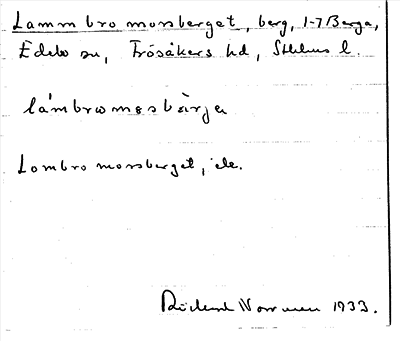 Lammbromorsberget, berg, 1-7 Berga,
Edebo sn, Frösåkers hd, Sthlms l.
lámbrωmωsbärja
Lombromorsberget, ele.
Rickard Norrman 1933.